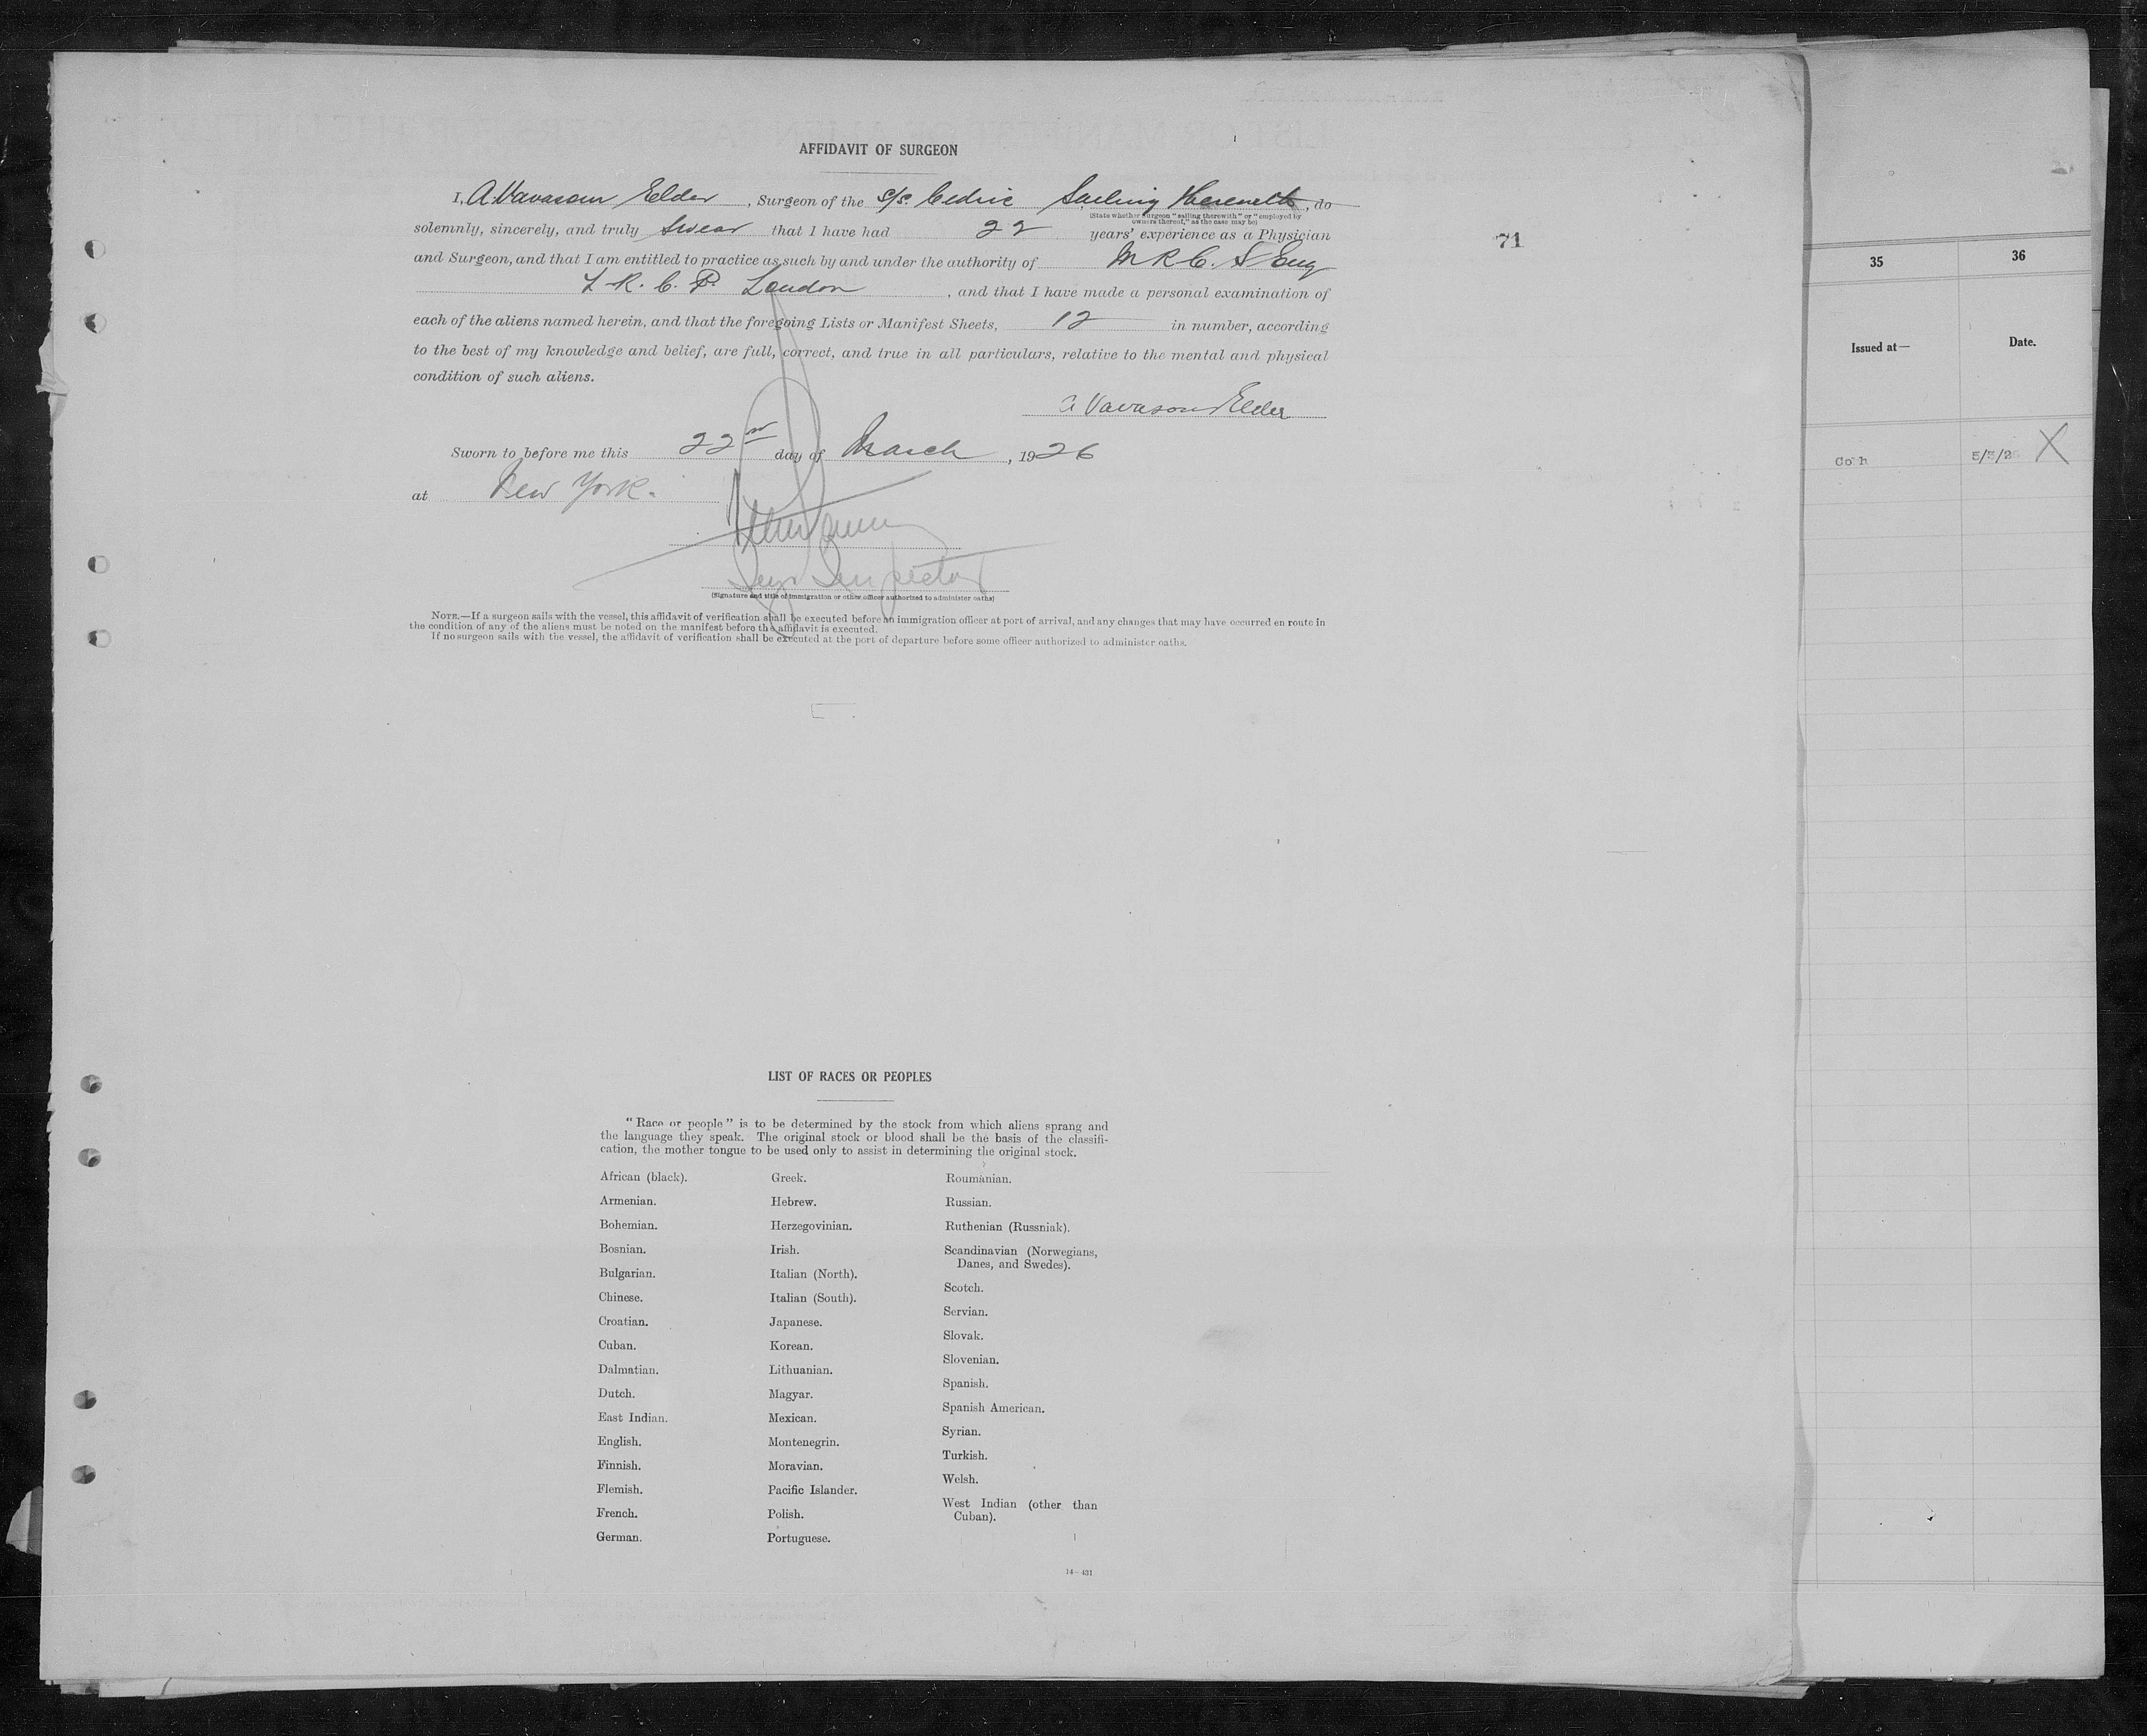 AFFIDAVIT OF SURGEON
I, A Vavasour Elder, Surgeon of the S/S. Cedric Sailing Therewith, do
(State whether surgeon "sailing therewith" or "employed by
owners thereof," as the case may be)
solemnly, sincerely, and truly swear that I have had 22 years' experience as a Physician
71
and Surgeon, and that I am entitled to practice as such by and under the authority of M R C. S Eng
L. R. C. P. London, and that I have made a personal examination of
each of the aliens named herein, and that the foregoing Lists or Manifest Sheets, 12 in number, according
to the best of my knowledge and belief, are full, correct, and true in all particulars, relative to the mental and physical
condition of such aliens.
A Vavasour Elder
Sworn to before me this 22nd day of March, 1926
at New York.
Inspector
(Signature and title of immigration or other officer authorized to administer oaths)
NOTE.—If a surgeon sails with the vessel, this affidavit of verification shall be executed before an immigration officer at port of arrival, and any changes that may have occurred en route in
the condition of any of the aliens must be noted on the manifest before the affidavit is executed.
If no surgeon sails with the vessel, the affidavit of verification shall be executed at the port of departure before some officer authorized to administer oaths.
LIST OF RACES OR PEOPLES
"Race or people" is to be determined by the stock from which aliens sprang and
the language they speak. The original stock or blood shall be the basis of the classifi-
cation, the mother tongue to be used only to assist in determining the original stock.
African (black).
Armenian.
Bohemian.
Bosnian.
Bulgarian.
Chinese.
Croatian.
Cuban.
Dalmatian.
Dutch.
East Indian.
English.
Finnish.
Flemish.
French.
German.
Greek.
Hebrew.
Herzegovinian.
Irish.
Italian (North).
Italian (South).
Japanese.
Korean.
Lithuanian.
Magyar.
Mexican.
Montenegrin.
Moravian.
Pacific Islander.
Polish.
Portuguese.
Roumanian.
Russian.
Ruthenian (Russniak).
Scandinavian (Norwegians,
Danes, and Swedes).
Scotch.
Servian.
Slovak.
Slovenian.
Spanish.
Spanish American.
Syrian.
Turkish.
Welsh.
West Indian (other than
Cuban).
14—431
35
36
Issued at—
Date.
Co h
5/5/2
X